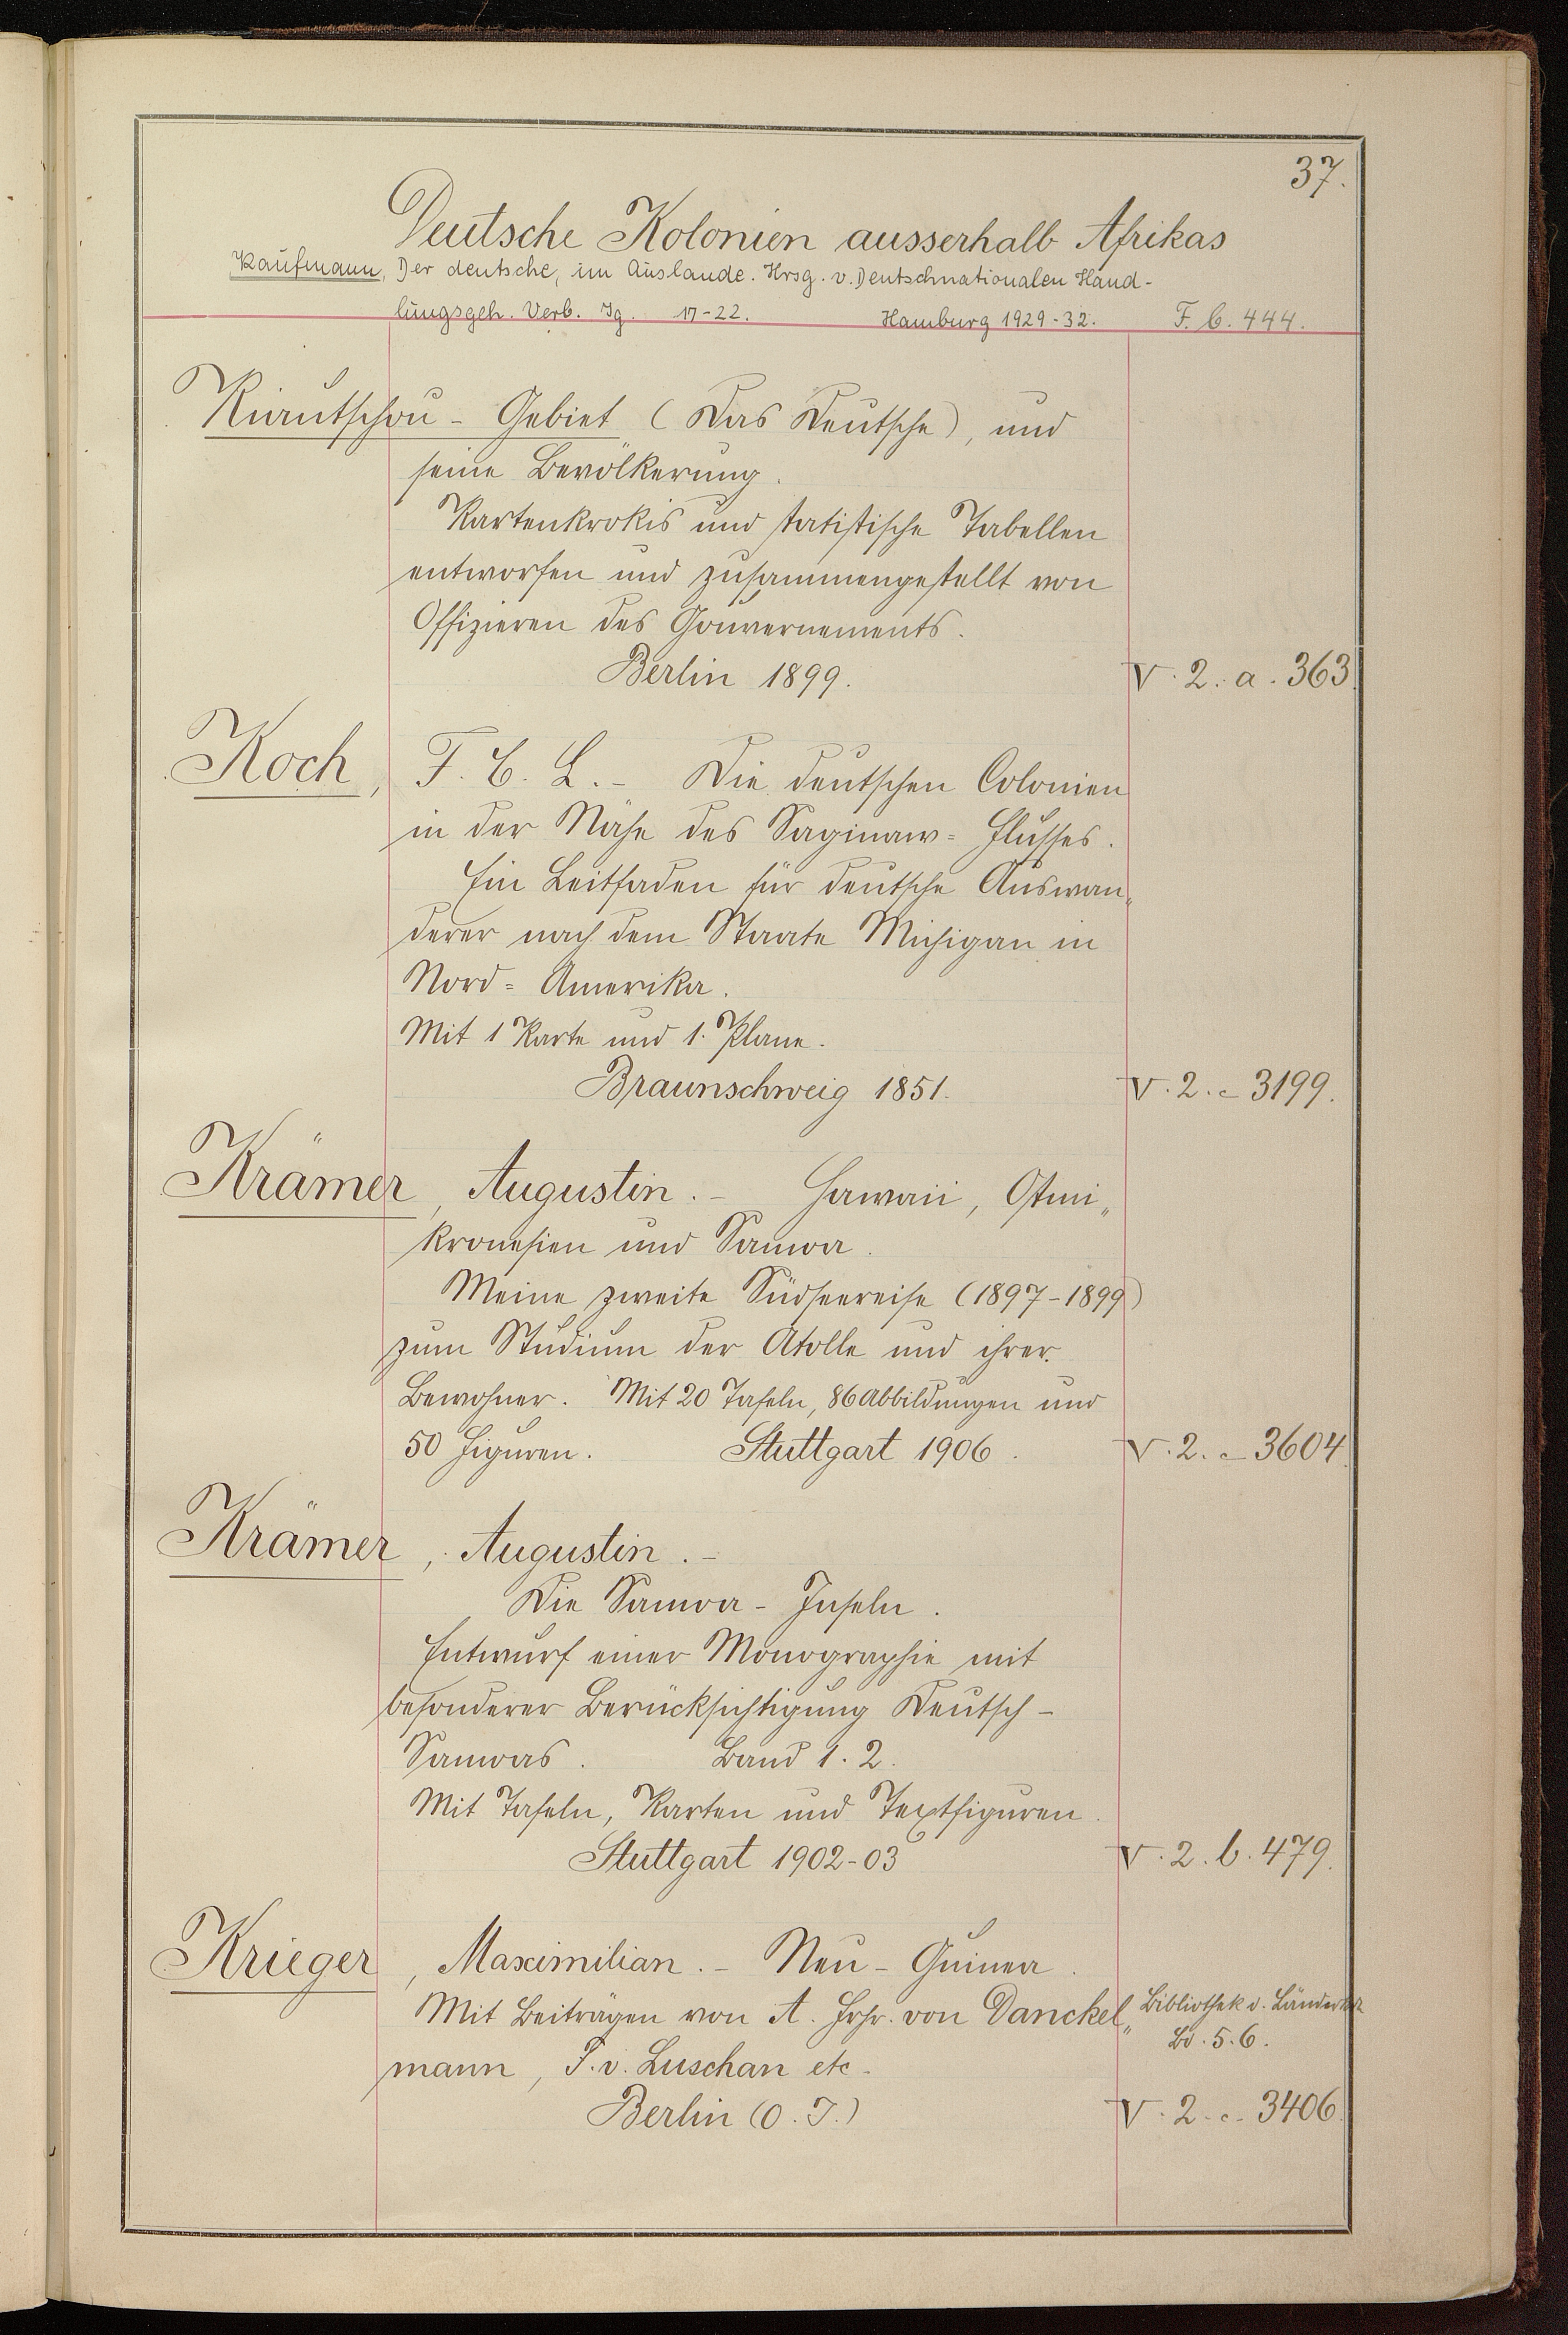 37.
Deutsche Kolonien ausserhalb Afrikas
Kaufmann, Der deutsche, im Auslande. Hrsg. v. Deutschnationalen Hand-
lungsgeh. Verb. Jg. 17-22. Hamburg 1929-32. F. b. 444.
Kiautschou - Gebiet (Das Deutsche), und
seine Bevölkerung.
Kartenkrokis und statistische Tabellen
entworfen und zusammengestellt von
Offizieren des Gouvernements.
Berlin 1899. V. 2. a. 363.
Koch, F. C. L. - Die deutschen Colonien
in der Nähe des Saginaw= Flusses.
Ein Leitfaden für deutsche Auswan„
derer nach dem Staate Michigan in
Nord= Amerika.
Mit 1 Karte und 1. Plane.
Braunschweig 1851. V. 2. c 3199.
Krämer, Augustin. - Hawaii, Ostmi„
kronesien und Samoa.
Meine zweite Südseereise (1897-1899)
zum Studium der Atolle und ihrer
Bewohner. Mit 20 Tafeln, 86 Abbildungen und
50 Figuren. Stuttgart 1906. V. 2. c 3604.
Krämer, Augustin. -
Die Samoa - Inseln.
Entwurf einer Monographie mit
besonderer Berücksichtigung Deutsch -
Samoas. Band 1. 2.
Mit Tafeln, Karten und Textfiguren.
Stuttgart 1902-03 V. 2. b. 479.
Krieger, Maximilian. - Neu - Guinea.
Mit Beiträgen von A. Frhr. von Danckel„ Bibliothek d. Länderkde
mann, F. v. Luschan etc. Bd. 5. 6.
Berlin (O. J.) V. 2. c. 3406.